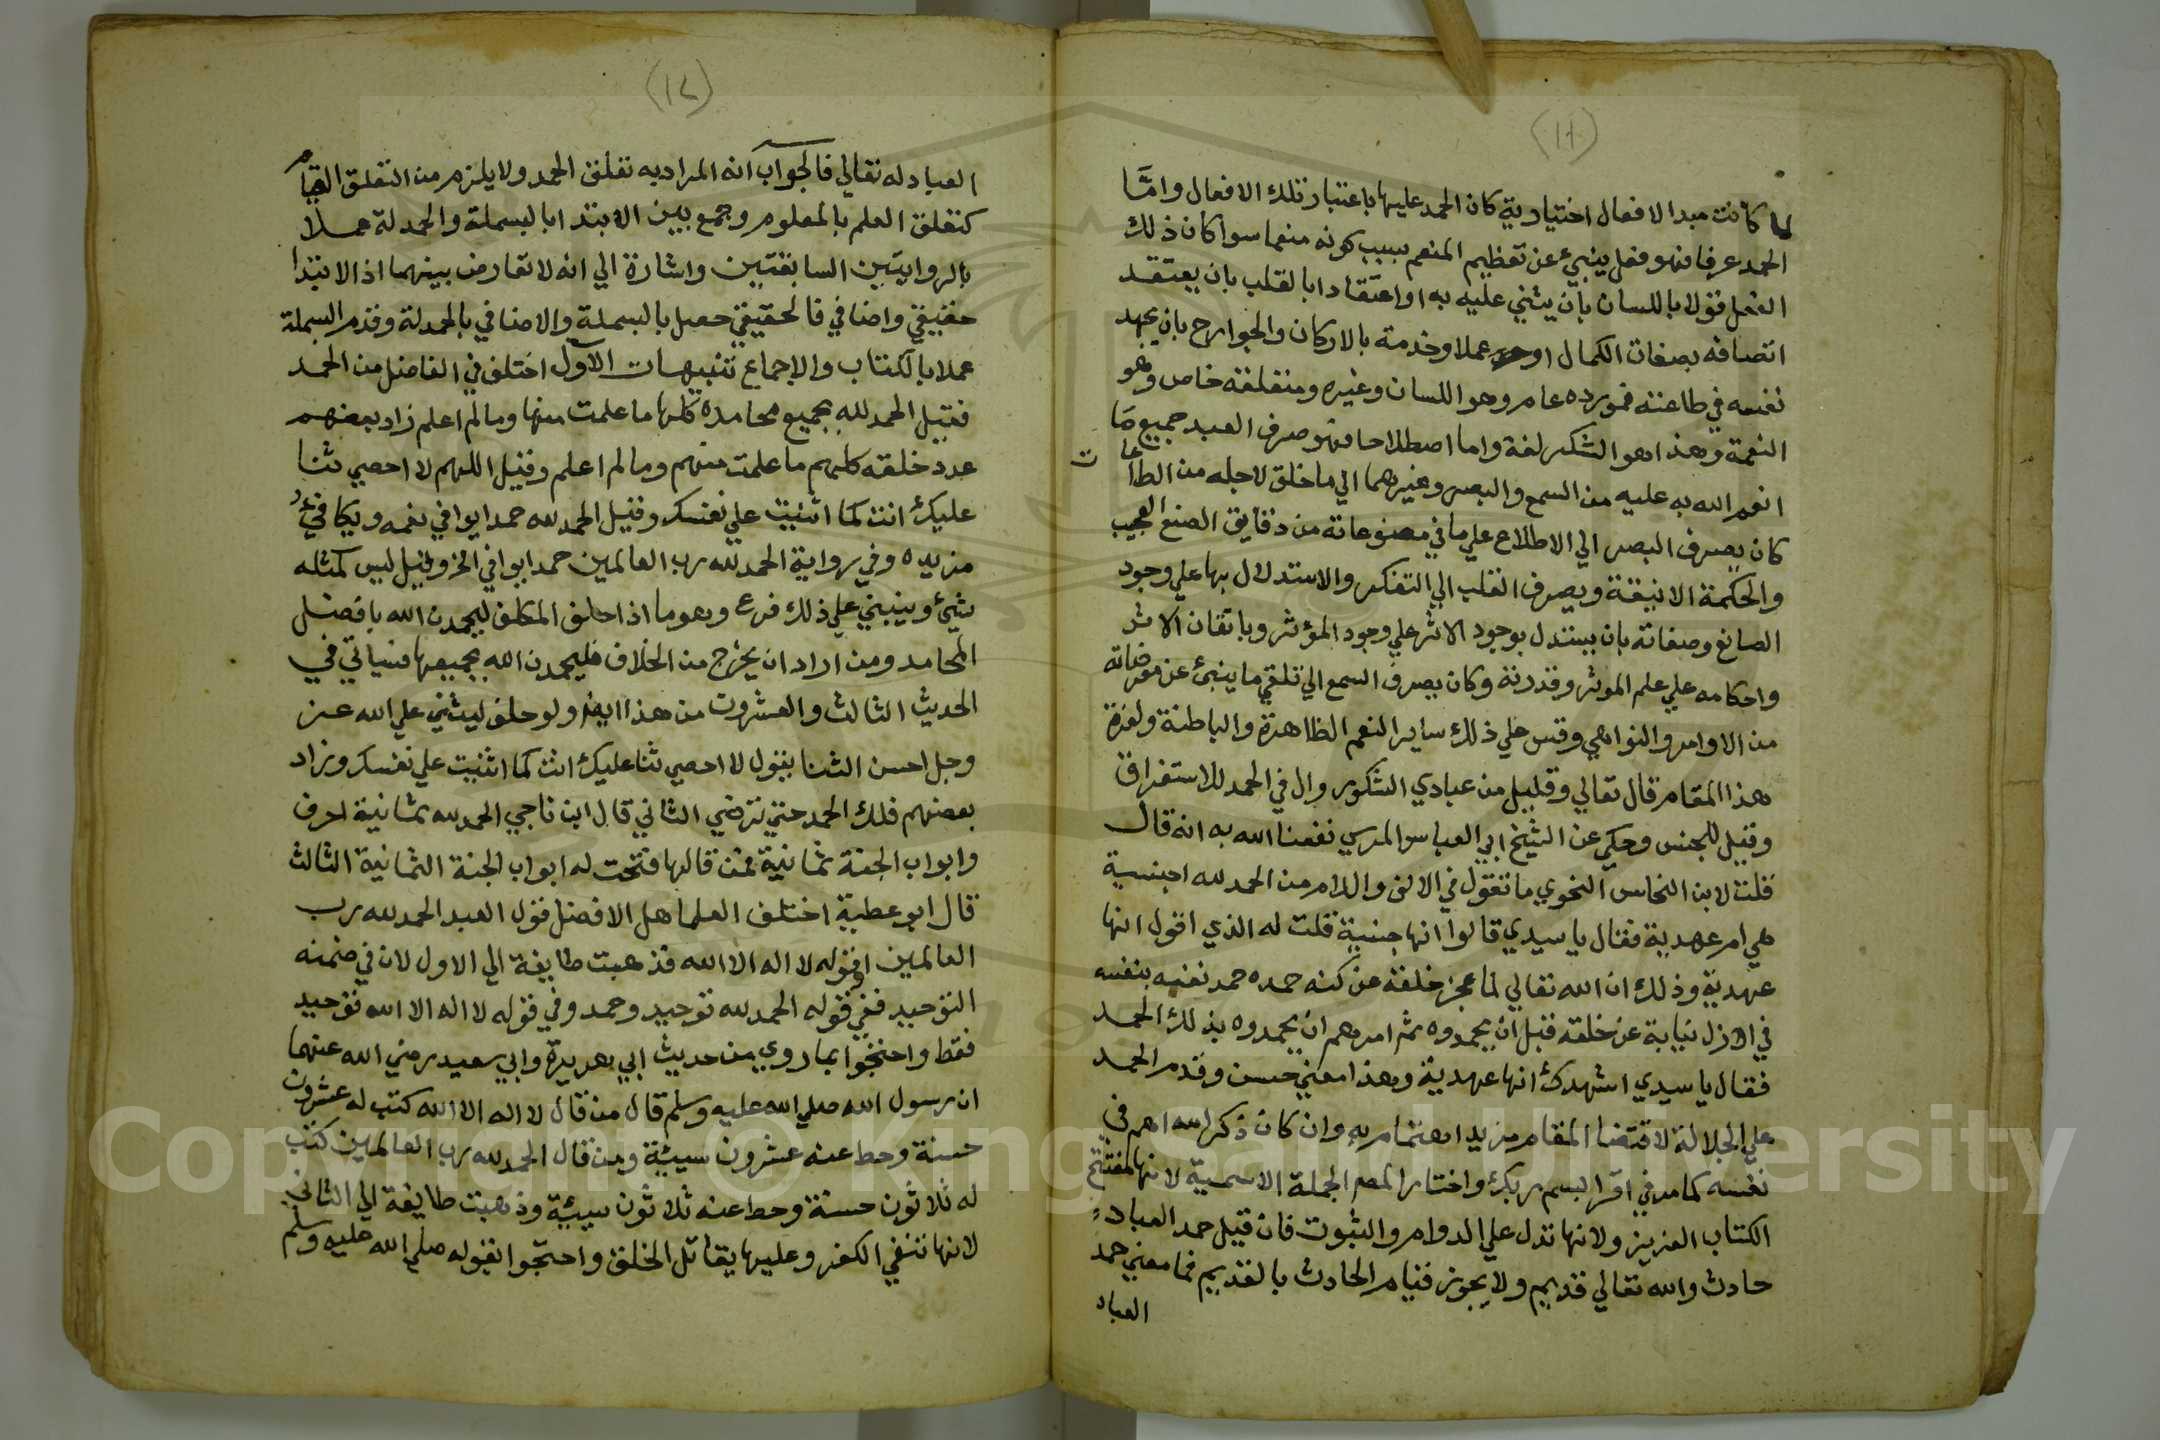 (١١)
لما كانت مبدا الافعال اختيارية كان الحمد عليها باعتبار تلك الافعال وامَّا
الحمد عرفا فهو فعل ينبئ عن تعظيم المنعم بسبب كونه منعما سوا كان ذلك
الفعل قولا باللسان بان يثني عليه به او اعتقادا بالقلب بان يعتقد
اتصافه بصفات الكمال او عملا وخدمة بالاركان والجوارح بان يجهد
نفسه في طاعته فمورده عام وهو اللسان وغيره ومتعلقه خاص وهو
النعمة وهذا هو الشكر لغة واما اصطلاحا فهو صرف العبد جميع مَا
انعم الله به عليه من السمع والبصر وغيرهما الي ما خلق لاجله من الطاعات
كان يصرف البصر الي الاطلاع علي ما في مصنوعاته من دقايق الصنع العجيب
والحكمة الانيقة ويصرف القلب الي التفكر والاستدلال بها علي وجود
الصانع وصفاته بان يستدل بوجود الاثر علي وجود المؤثر وباتقان الاثر
واحكامه علي علم الموثر وقدرته وكان يصرف السمع الي تلقي ما ينبئ عن مرضاته
من الاوامر والنواهي وقس علي ذلك ساير النعم الظاهرة والباطنة ولعزة
هذا المقام قال تعالي وقليل من عبادي الشكور وال في الحمد للاستغراق
وقيل للجنس وحكي عن الشيخ ابي العباس المرسي نفعنا الله به انه قال
قلت لابن النحاس النحوي ما تقول في الالف واللام من الحمد لله اجنسية
هي ام عهدية فقال يا سيدي قالوا انها جنسية قلت له الذي اقول انها
عهدية وذلك ان الله تعالي لما عجز خلقه عن كنه حمده حمد نفسه بنفسه
في الازل نيابة عن خلقه قبل ان يحمدوه ثم امرهم ان يحمدوه بذلك الحمد
فقال يا سيدي اشهدك انها عهدية وهذا معني حسن وقدم الحمد
علي الجلالة لاقتضا المقام مزيد اهتمام به وان كان ذكر الله اهم في
نفسه كما مر في اقرا باسم ربك واختار المصـ الجملة الاسمية لانها مفتتح
الكتاب العزيز ولانها تدل علي الدوام والثبوت فان قيل حمد العباد
حادث والله تعالي قديم ولا يجوز قيام الحادث بالقديم فما معني حمد
العباد
(١٢)
العباد له تعالي فالجواب انه المراد به تعلق الحمد ولا يلزم من التعلق القيام
كتعلق العلم بالمعلوم وجمع بين الابتدا بالبسملة والحمدلة عملا
بالروايتين السابقتين واشارة الي انه لا تعارض بينهما اذ الابتدا
حقيقي واضافي فالحقيقي حصل بالبسملة والاضافي بالحمدلة وقدم البسملة
عملا بالكتاب والاجماع تنبيهات الآول اختلف في الفاضل من الحمد
فقيل الحمد لله بجميع محامده كلها ما علمت منها وما لم اعلم زاد بعضهم
عدد خلقه كلهم ما علمت منهم وما لم اعلم وقيل اللهم لا احصي ثنا
عليك انت كما اثنيت علي نفسك وقيل الحمد لله حمدا يوافي نعمه ويكافئ
مزيده وفي رواية الحمد لله رب العالمين حمدا يوافي الخ وقيل ليس كمثله
شيئ وينبني علي ذلك فرع وهو ما اذا حلف المكلف ليحمدن الله بافضل
المحامد ومن اراد ان يخرج من الخلاف فليحمدن الله بجميعها فسياتي في
الحديث الثالث والعشرون من هذا ايضا ولو حلف ليثني علي الله عز
وجل احسن الثنا يقول لا احصي ثنا عليك انت كما اثنيت علي نفسك وزاد
بعضهم فلك الحمد حتي ترضي الثاني قال ابن ناجي الحمد لله ثمانية احرف
وابواب الجنة ثمانية فمن قالها فتحت له ابواب الجنة الثمانية الثالث
قال ابو عطية اختلف العلما هل الافضل قول العبد الحمد لله رب
العالمين او قوله لا اله الا الله فذهبت طايفة الي الاول لان في ضمنه
التوحيد ففي قوله الحمد لله توحيد وحمد وفي قوله لا اله الا الله توحيد
فقط واحتجوا بما روي من حديث ابي هريرة وابي سعيد رضي الله عنهما
ان رسول الله صلي الله عليه وسلم قال من قال لا اله الا الله كتب له عشرون
حسنة وحط عنه عشرون سيئة ومن قال الحمد لله رب العالمين كتب
له ثلاثون حسنة وحط عنه ثلاثون سيئة وذهبت طايفة الي الثاني
لانها تنفي الكفر وعليها يقاتل الخلق واحتجوا بقوله صلي الله عليه وسلم
Copyright © King Saud University